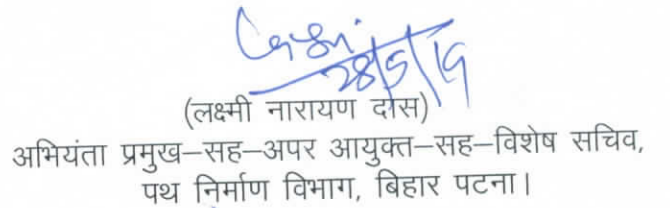 28/5/19
(लक्ष्मी नारायण दास)
अभियंता प्रमुख–सह–अपर आयुक्त–सह–विशेष सचिव,
पथ निर्माण विभाग, बिहार पटना।